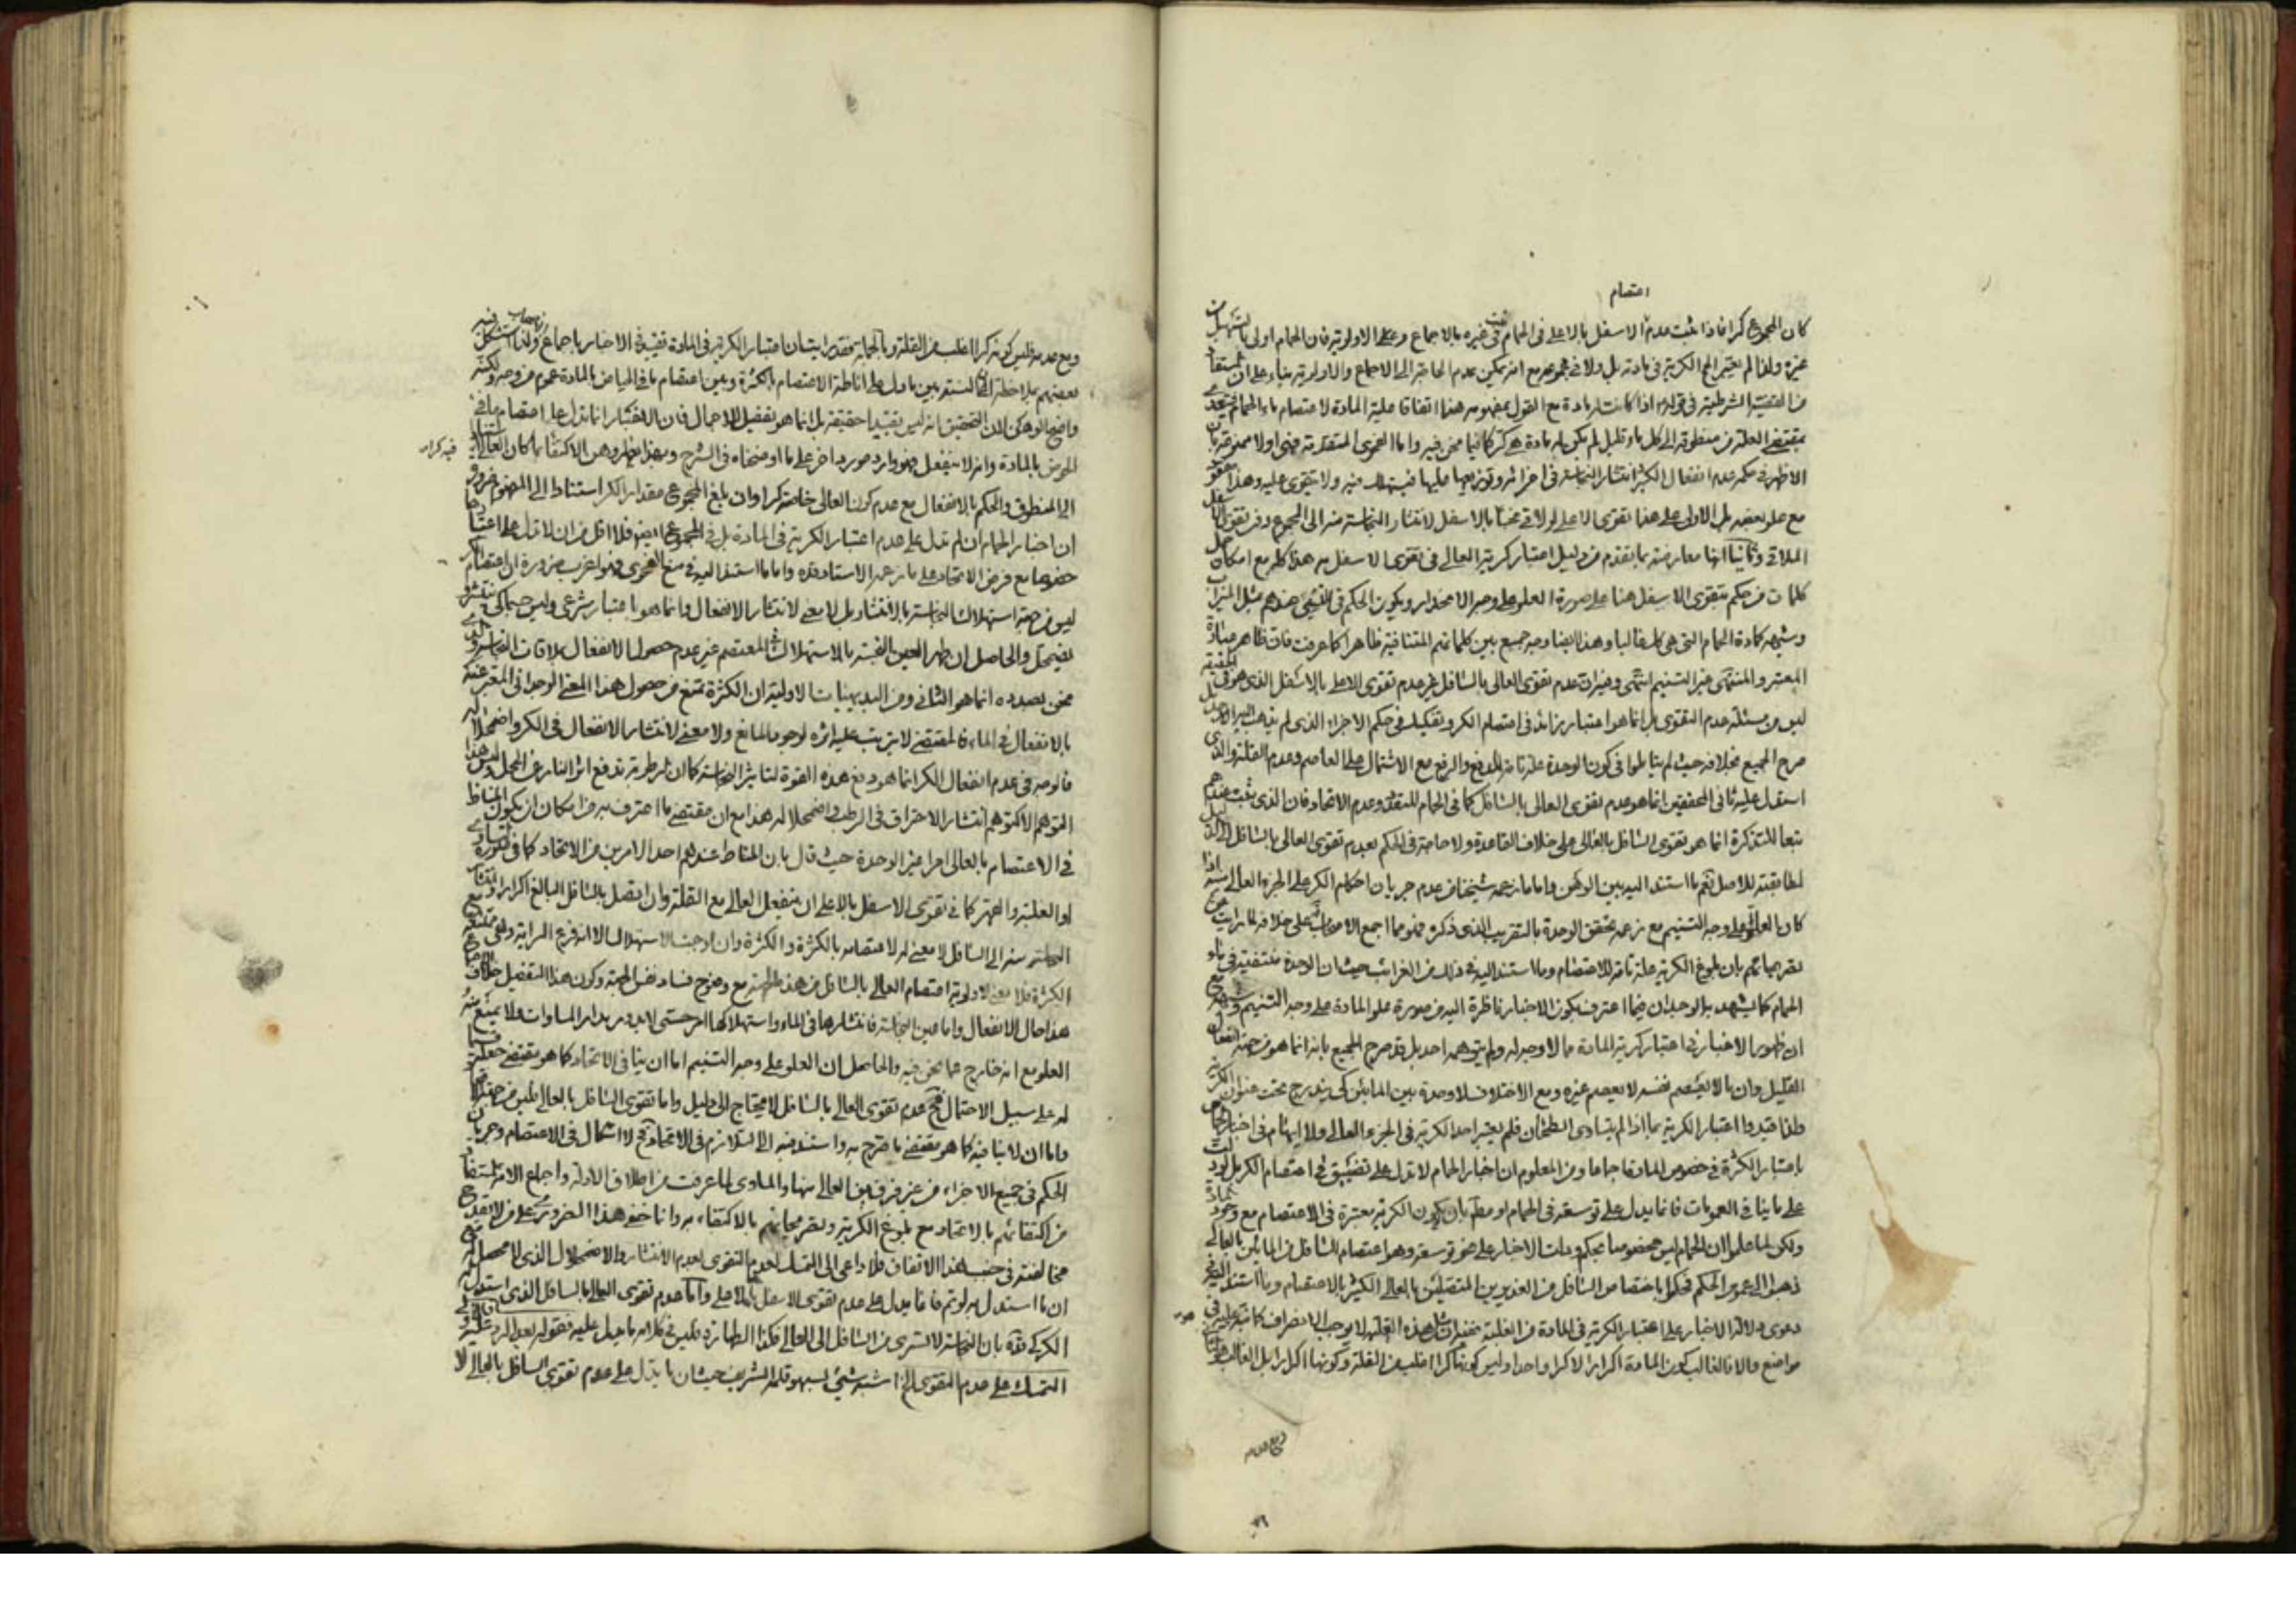 اعتصام
كان المجموع كرا فاذا ثبت عدم الاسفل بالاعلى فى الحمام ثبت فى غيره بالاجماع وعلى الاولوية فان الحمام اولى بالتسهيل من
غيره ولذا لم يعتبر الكرية فى مادته بل ولا فى مجموعه مع انه يمكن عدم الحاجة الى الاجماع والاولوية بناء على ان المستفاد
من القضية الشرطية فى قوله اذا كانت له مادة مع القول بمفهومه هنا اتفاقا علية المادة لاعتصام ماء الحمام فيتعدى
بمقتضى العلة من منطوقه الى كل ماء قليل لم يكن له مادة هى كر كما فيما نحن فيه واما الفحوى المتقدمة فهى اولا ممنوعة بان
الاظهر فى حكمة عدم انفعال الكثير انتشار النجاسة فى اجزائه وتوزيعها عليها فيستهلك فيه ولا يتقوى عليه وهذا مفقود
مع علو بعضه بل الاولى على هذا تقوى الاعلى لو لاقى نجسا بالاسفل لانتشار النجاسة منه الى المجموع دون تقوى الاسفل
الملاقى وثانيا انها معارضة بما تقدم من دليل اعتبار كرية العالى فى تقوى الاسفل به هذا كله مع امكان حمل
كلمات من حكم بتقوى الاسفل هنا على صورة العلو على وجه الانحدار ويكون الحكم فى التسنيم عندهم مثل الميزاب
وشبهه كمادة الحمام التى هى كذلك غالبا وهذا ايضا وجه جمع بين كلماتهم المتنافية ظاهرا كما عرفت فان ظاهر عبارة
المعتبر والمنتهى غير التسنيم انتهى وفيه ان عدم تقوى العالى بالسافل غير عدم تقوى الاعلى بالاسفل الذى هو فى الحقيقة
ليس من مسئلة عدم التقوى بل انما هو اعتبار زائد فى اعتصام الكر وتفكيك فى حكم الاجزاء الذى لم يذهب اليه احد بل
صرح الجميع بخلافه حيث لم يتاملوا فى كون الوحدة علة تامة للدفع والرفع مع الاشتمال على العاصم وعدم القلة والذى
استدل عليه ثانى المحققين انما هو عدم تقوى العالى بالسافل كما فى الحمام للتعدد وعدم الاتحاد فان الذى يثبت عندهم
تبعا للتذكرة انما هو تقوى السافل بالعالى على خلاف القاعدة ولا حاجة فى الحكم بعدم تقوى العالى بالسافل الى الدليل
لمطابقته للاصل نعم ما استند اليه بين الوهن واما ما زعمه شيخنا من عدم جريان احكام الكر على الجزء العالى منه اذا
كان العلو على وجه التسنيم مع زعمه تحقق الوحدة بالتقريب الذى ذكره فهو مما اجمع الاصحاب على خلافه لما رايت من
تصريحاتهم بان بلوغ الكرية علة تامة للاعتصام وما استند اليه فى ذلك من الغرائب حيث ان الوحدة منتفية فى ماء
الحمام كما يشهد به الوجدان فيما اعترف بكون الاخبار ناظرة اليه من صورة علو المادة على وجه التسنيم وشبهه مع
ان ظهور الاخبار فى اعتبار كرية المادة مما لا وجه له ولم يتوهمه احد بل قد صرح الجميع بانه انما هو من جهة انفعال
القليل وان ما لا يعتصم نفسه لا يعصم غيره ومع الاختلاف لا وحدة بين المائين كى يندرج تحت عنوان الكرية
ولذا قيدوا اعتبار الكرية بما اذا لم يتساوى السطحان فلم يعتبر احد الكرية فى الجزء العالى ولا ايهام فى اخبار الحمام
باعتبار الكثرة فى خصوص المادة اجماعا ومن المعلوم ان اخبار الحمام لا تدل على تضييق فى اعتصام الكر بل لورودها
على ما ينافى العمومات فانما يدل على توسعة فى الحمام او مطلقا بان يكون الكرية معتبرة فى الاعتصام مع وجود المادة
ولكن لما علموا ان الحمام ليس مخصوصا بحكم ودلت الاخبار على نحو توسعة وهو اعتصام السافل من المائين بالعالى
ذهبوا الى عموم الحكم فحكموا باختصاص السافل من الغديرين المتصلين بالعالى الكثير بالاعتصام وما استند اليه من
دعوى دلالة الاخبار على اعتبار الكرية فى المادة من الغلبة ففيه ان مثل هذه الغلبة لا يوجب الانصراف كما نبه عليه فى
مواضع والا فالغالب كون المادة اكرارا لا كرا واحدا وليس كونها كرا اغلب من القلة وكونها اكرارا بل الغالب
ومع عدمه
ومع عدمه فليس كونه كرا اغلب من القلة وبالجملة فقد رايت ان اعتبار الكرية فى المادة تقييد فى الاخبار باجماع الاصحاب ولذا استشكل فيه
بعضهم بملاحظة ان النسبة بين ما دل على اناطة الاعتصام بالكثرة وبين اعتصام ما فى الحياض بالمادة عموم من وجه ولكنه
واضح الوهن لان التحقيق انه ليس تقييدا حقيقة بل انما هو تفصيل للاجمال فان الاخبار انما تدل على اعتصام ما فى
الحوض بالمادة وانه لا ينفعل فهو وارد مورد اخر على ما اوضحناه فى الشرح وبهذا يظهر وهن الاكتفاء بما كان العالى استنادا
فيه كرا
الى المنطوق والحكم بالانفعال مع عدم كون العالى خاصة كرا وان بلغ المجموع مقدار الكر استنادا الى المفهوم ضرورة
ان اخبار الحمام ان لم تدل على عدم اعتبار الكرية فى المادة بل فى المجموع ايضا فلا اقل من ان لا تدل على اعتبارها
خصوصا مع فرض الاتحاد على ما زعمه الاستاد قده واما ما استند اليه فى منع الفحوى فهو اغرب ضرورة ان اعتصام الكر
ليس من جهة استهلاك النجاسة بالانتشار بل لا معنى لانتشار الانفعال وانما هو اعتبار شرعى وليس جسما كى ينتشر و
يضمحل والحاصل ان طهر العين النجسة بالاستهلاك فى المعتصم غير عدم حصول الانفعال بملاقات النجاسة والذى
نحن بصدده انما هو الثانى ومن البديهيات الاولية ان الكثرة تمنع من حصول هذا المعنى الوحدانى المعبر عنه
بالانفعال فى الماء فالمقتضى لا يترتب عليه اثره لوجود المانع ولا معنى لانتشار الانفعال فى الكر واضمحلاله
فالوجه فى عدم انفعال الكر انما هو دفع هذه القوة لتاثير النجاسة كما ان الرطوبة تدفع اثر النار عن المحل وليس هذا
التوهم الا كتوهم انتشار الاحتراق فى الرطب واضمحلاله هذا مع ان مقتضى ما اعترف به من امكان ان يكون المناط
فى الاعتصام بالعالى امرا غير الوحدة حيث قال بان المناط عندهم احد الامرين من الاتحاد كما فى صورة التساوى
او العلية والقهر كما فى تقوى الاسفل بالاعلى ان ينفعل العالى مع القلة وان اتصل بالسافل البالغ اكرارا وانتشار
النجاسة منه الى السافل لا معنى له لاعتصامه بالكثرة والكثرة وان اوجبت الاستهلاك الا انه فرع السراية وهى ممتنعة مع
الكثرة فلا معنى لاولوية اعتصام العالى بالسافل من هذه الجهة مع وضوح فساد نفس الجهة وكون هذا التفصيل خلاف الاجماع
هذا حال الانفعال واما عين النجاسة فانتشارها فى الماء واستهلاكها امر حسى لا يدور مدار المساوات ولا يمنع منه
العلو مع انه خارج عما نحن فيه والحاصل ان العلو على وجه التسنيم اما ان ينافى الاتحاد كما هو مقتضى جعله قسيما
له على سبيل الاحتمال فح عدم تقوى العالى بالسافل لا يحتاج الى دليل واما تقوى السافل بالعالى فليس من جهة الاتحاد
واما ان لا ينافيه كما هو مقتضى ما صرح به واستند فيه الى التلازم فى الاتحاد فح لا اشكال فى الاعتصام وجريان
الحكم فى جميع الاجزاء من غير فرق بين العالى منها والمساوى لما عرفت من اطلاق الادلة واجماع الامة المستفاد
من اكتفائهم بالاتحاد مع بلوغ الكرية وتصريحاتهم بالاكتفاء به وانا خفى هذا الضرورى على من لا يقدح
مخالفته فى حجية هذا الاتفاق فلا داعى الى التمسك لعدم التقوى بعدم الانتشار والاضمحلال الذى لا محصل له مع
ان ما استدل به لو تم فانما يدل على عدم تقوى الاسفل بالاعلى واما عدم تقوى العالى بالسافل الذى استدل له
الكركى قده بان النجاسة لا تسرى من السافل الى العالى فكذا الطهارة فليس فى كلامه ما يدل عليه فقوله بعد الرد عليه فالاولى
التمسك على عدم التقوى الخ اشبه شئ بسهو قلمه الشريف حيث ان ما يدل على عدم تقوى السافل بالعالى لا